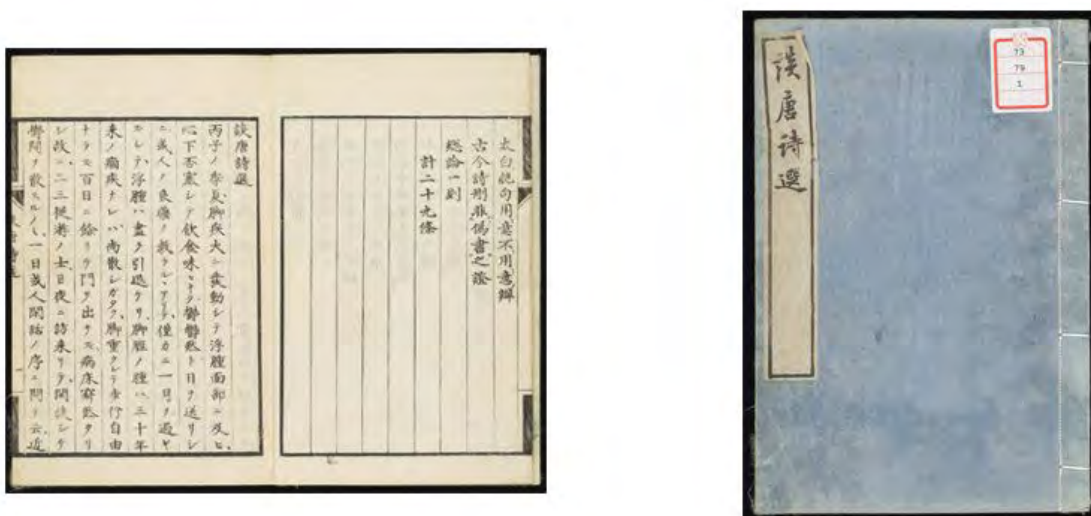 太白絶句用意不用意辨
古今詩刪非偽書之證
総論一則
計二十九條
談唐詩選
丙子ノ季夏脚疾大ニ發動シテ浮腫面部ニ及ヒ、
心下否塞シテ飲食味ヒナク、鬱鬱然ト日ヲ送リシ
ニ或人ノ良療ノ救アリテ、僅カニ一月ヲ過
スシテ、浮腫ハ盡ク引退ケリ、脚ノ腫ハ三十年
来ノ痼疾ナレハ、尚散シガタク、脚重クシテ歩行自由
ナラス百日ニ餘リ門ヲ出テス、病床寂然タリ
シ故ニ、二三ノ士日夜ニ訪来リテ、閑談シテ
鬱悶ヲ散スルノミ、一日或人閑話ノ序ニ問テ云、近
談唐詩選
73
79
1